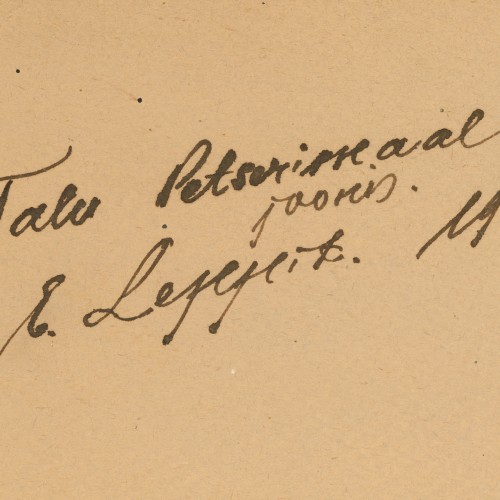 Talu Petserimaal
joonis.
E. Leppik. 19